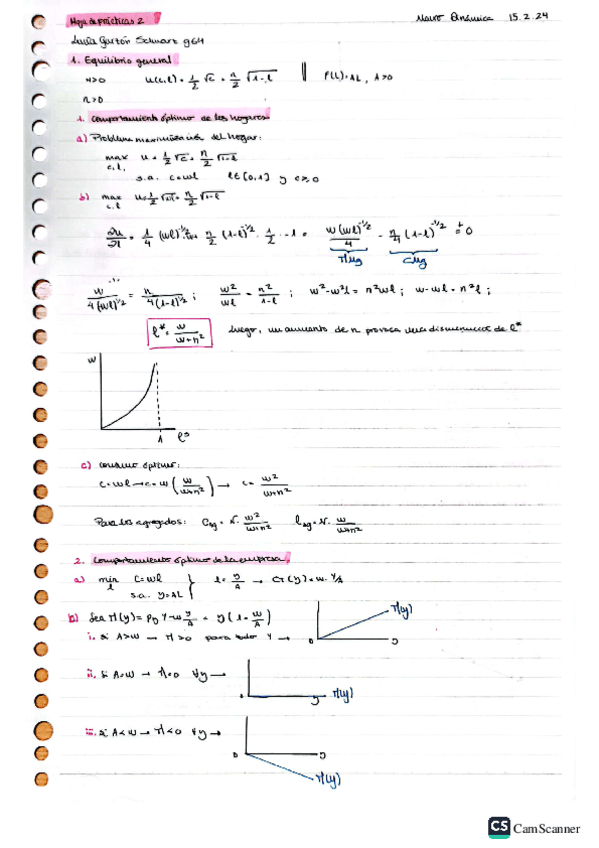 Hoja de prácticas 2
Macro Dinámica 15.2.24
Lucía Garzón Schwart g64
1. Equilibrio general
n>0 u(c,l) = 1/2 √c + n/2 √1-l || F(L)=AL, A>0
n>0
1. Comportamiento óptimo de los hogares
a) Problema maximización del hogar:
max c,l, u = 1/2 √c + n/2 √1-l
s.a. c=wl l∈[0,1] y c≥0
b) max c,l u=1/2 √c + n/2 √1-l
∂u/∂l = 1/4 (wl)^-1/2 · w + n/2 (1-l)^-1/2 · 1/2 · -1 = w(wl)^-1/2 / 4 - n/4 (1-l)^-1/2 = 0
w / 4(wl)^1/2 = n / 4(1-l)^1/2 ; w²/wl = n²/1-l ; w²-w²l = n²wl ; w-wl = n²l ;
l* = w/w+n² luego, un aumento de n provoca una disminución de l*
w
1 l^s
c) consumo óptimo:
c=wl → c=w (w/w+n²) → c= w²/w+n²
Para los agregados: Cag = N· w²/w+n² lag = N· w/w+n²
2. Comportamiento óptimo de la empresa,
a) min l C=wl } l= y/A → CT(y)=w· y/A
s.a. y=AL
b) Sea π(y)= py Y-w y/A = y (1- w/A)
i. si A>w → π>0 para todo Y →
π(y)
0 y
ii. si A=w → π=0 ∀y →
0 y π(y)
iii. si A<w → π<0 ∀y →
0 y
π(y)
CS CamScanner